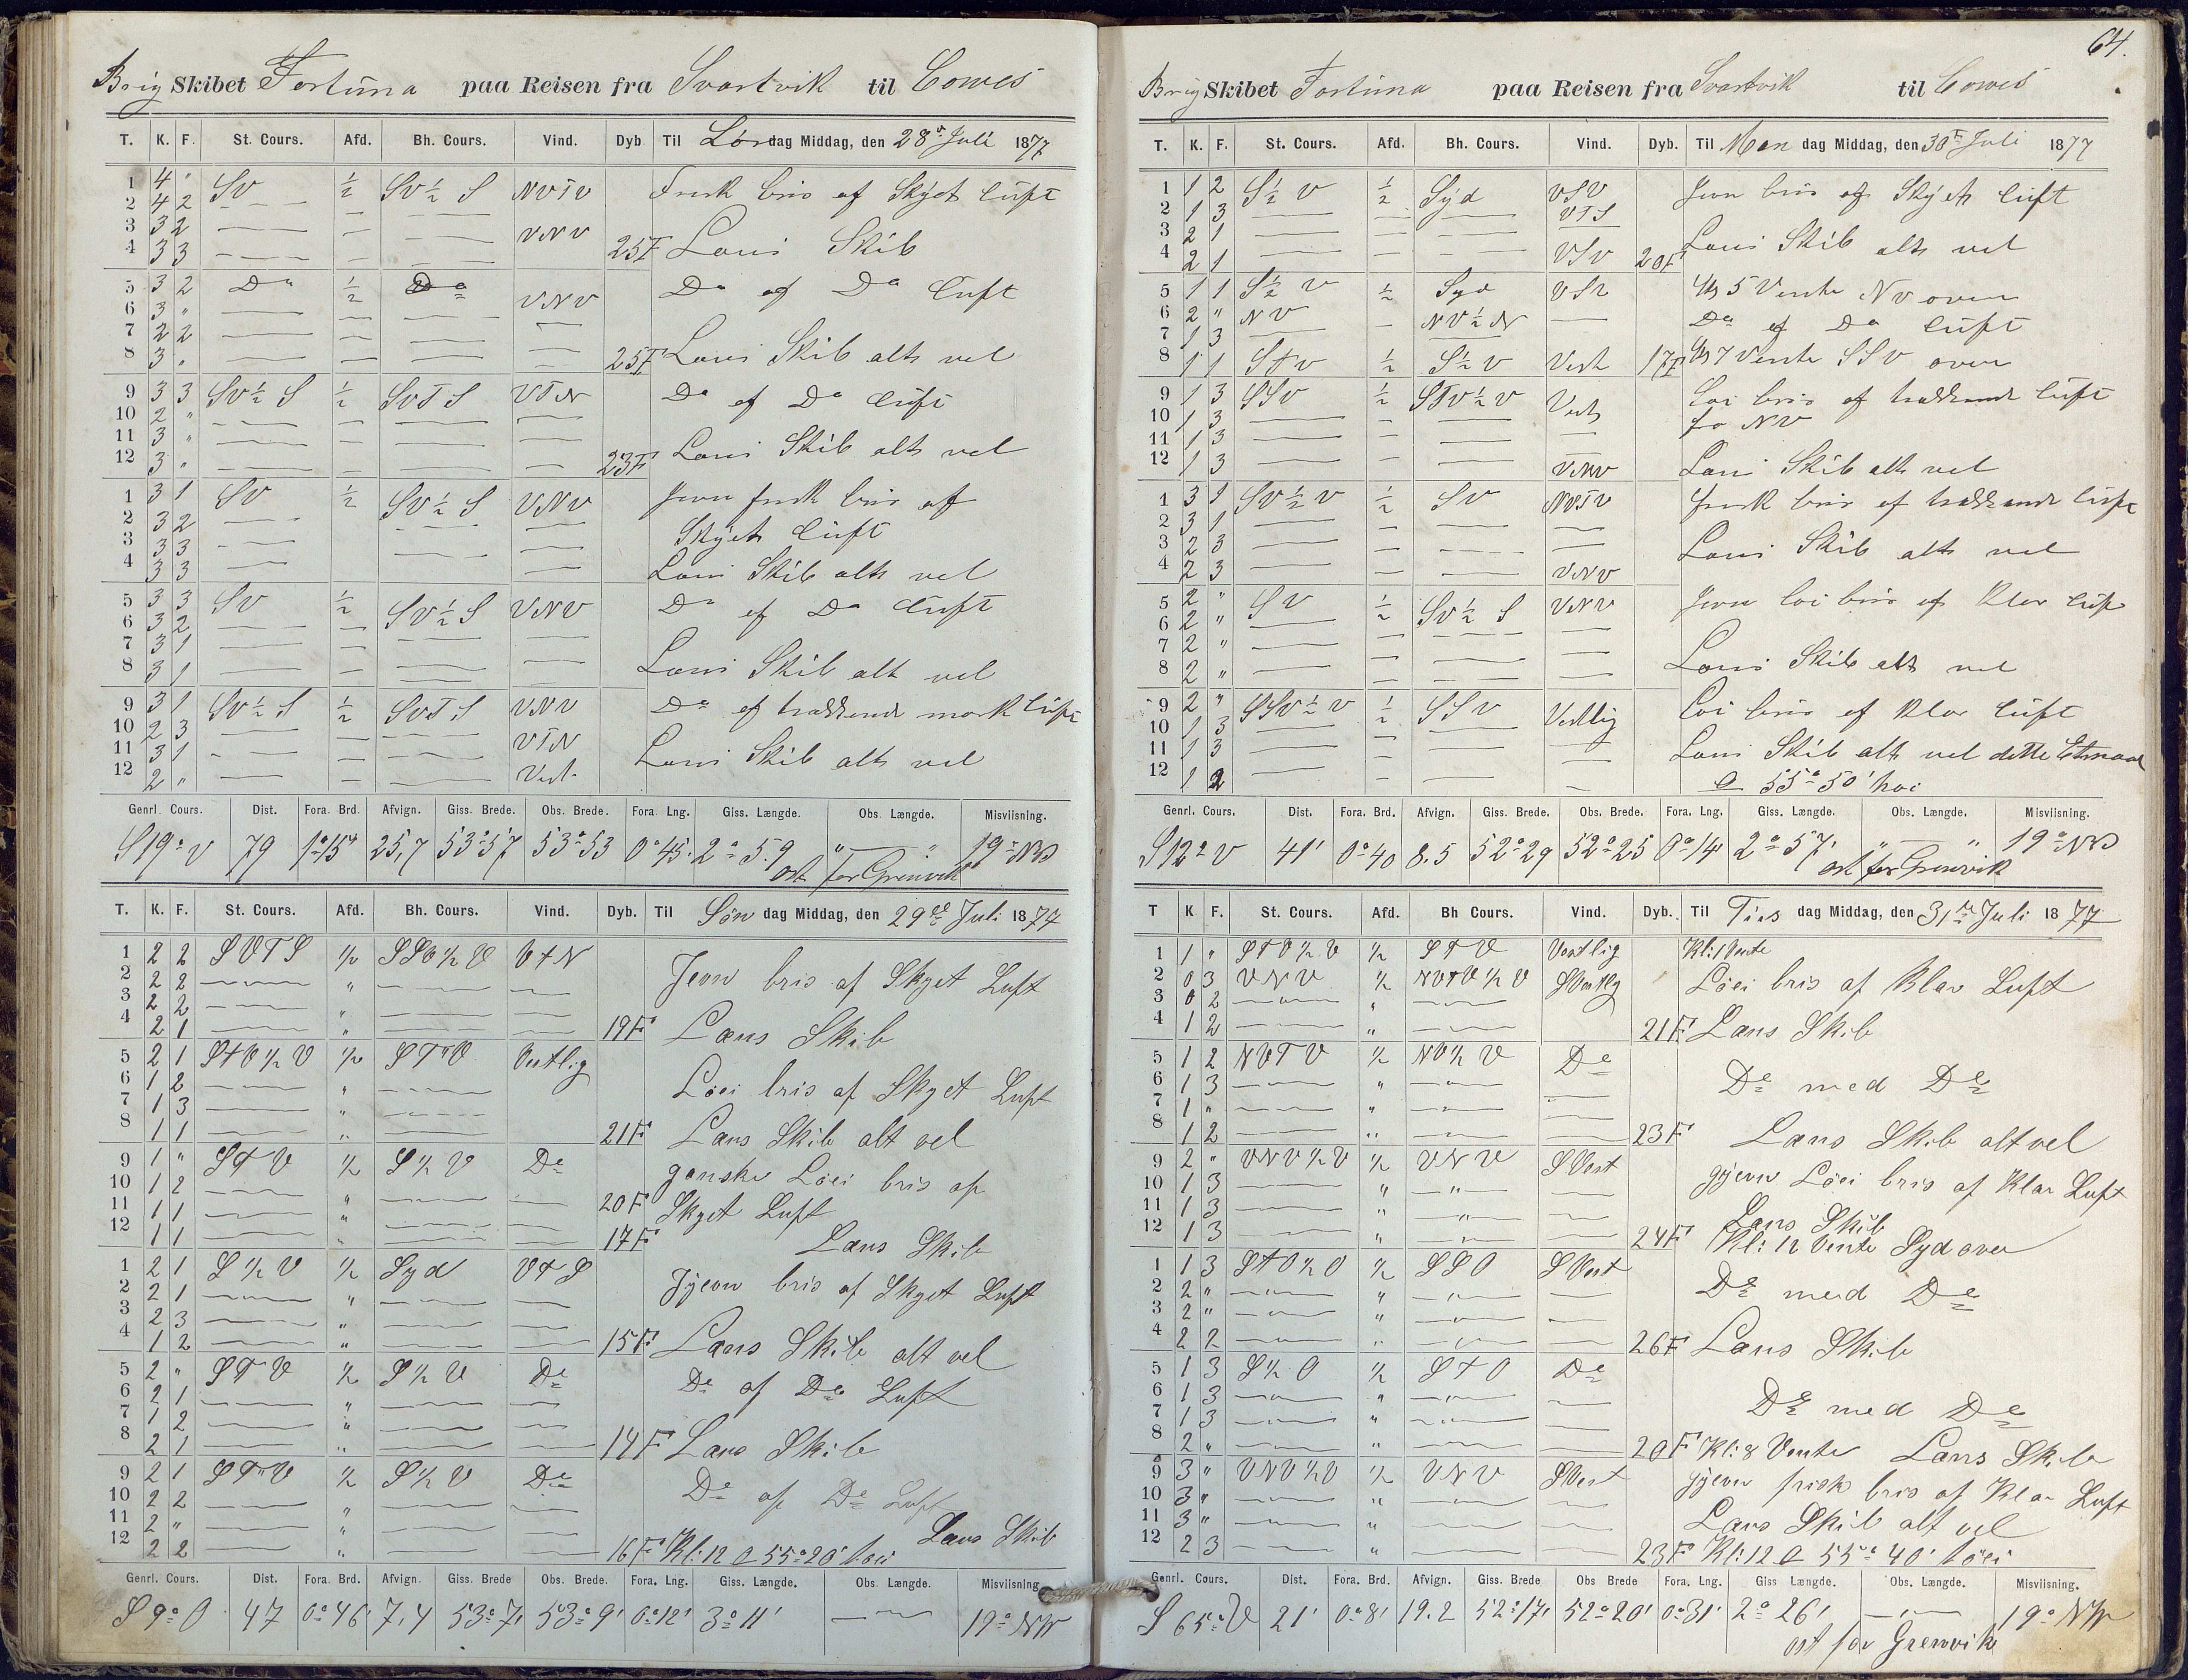 Brig Skibet Fortuna paa Reisen fra Svartvik til Cowes
T. K. F. St. Cours. Afd. Bh. Cours. Vind. Dyb Til Lørdag Middag, den 28de Juli 1877
1 4 " SV ½ SV½S NVTV Frisk bris af Skyet luft
2 4 2
3 3 2 VNV
4 3 3 25F Lens Skib
5 3 2 Do ½ Do VNV Do af Do luft
6 3 "
7 2 2
8 3 " 25F Lens Skib alt vel
9 3 3 SV½S ½ SVTS VTN Do af Do luft
10 2 "
11 3 "
12 3 " 23F Lens Skib alt vel
1 3 1 SV ½ SV½S VNV Jevn frisk bris af
2 3 2 Skyet luft
3 3 3
4 3 3 Lens Skib alt vel
5 3 3 SV ½ SV½S VNV Do af Do luft
6 3 2
7 3 1
8 3 1 Lens Skib alt vel
9 3 1 SV½S ½ SVTS VNV Do af trækkende mørk luft
10 2 3 VTN
11 3 1 Lens Skib alt vel
12 2 " Vest
Genrl. Cours. Dist. Fora. Brd. Afvign. Giss. Brede. Obs. Brede. Fora. Lng. Giss. Længde. Obs. Længde. Misviisning.
S19°V 79 1°15' 25,7 53°57 53°53 0°45' 2°59 " " 19°NV
ost for Grenvik
T. K. F. St. Cours. Afd. Bh. Cours. Vind. Dyb. Til Søn dag Middag, den 29de Juli 1877
1 2 2 SVTS ½ SSV½V VTN Jevn bris af Skyet Luft
2 2 2 "
3 2 2 "
4 2 1 " 19F Læns Skib
5 2 1 STV½V ½ STV Vestlig Løei bris af Skyet Luft
6 1 2 "
7 1 3 "
8 1 1 " 21F Læns Skib alt vel
9 1 " STV ½ S½V Do ganske Løei bris af
10 1 2 " 20F Skyet Luft
11 1 1 "
12 1 1 " 17F Læns Skib
1 2 1 S½V ½ Syd VTS Jjevn bris af Skyet Luft
2 2 1 "
3 2 3 "
4 1 2 " 15F Læns Skib alt vel
5 2 " STV ½ S½V Do Do af Do Luft
6 2 1 "
7 1 2 "
8 2 1 " 14F Læns Skib
9 2 1 STV ½ S½V Do Do af Do Luft
10 2 2 "
11 2 " " Læns Skib
12 2 2 " 16F Kl: 12 55°20' høi
Genrl. Cours. Dist. Fora. Brd. Afvign. Giss. Brede Obs. Brede. Fora. Lng. Giss. Længde. Obs. Længde. Misviisning.
S 9° O 47 0°46' 7,4 53°7' 53°9' 0°12' 3°11' 19° NW
64.
Brig Skibet Fortuna paa Reisen fra Svartvik til Cowes
T. K. F. St. Cours. Afd. Bh. Cours. Vind. Dyb. Til Man dag Middag, den 30te Juli 1877
1 1 2 S½V ½ Syd VSV Jevn bris af Skyet luft
2 1 3 VTS
3 2 1 Lens Skib alt vel
4 2 1 VSV 20F
5 1 1 S½V ½ Syd VSV Kl 5 Vente NV over
6 2 " NV NV½N Do af Do luft
7 1 3
8 1 1 STV ½ S½V Vest 17F Kl 7 Vente SSV over
9 1 3 SSV ½ STV½V Vest Løi bris af trækkende luft
10 1 3 fra NV
11 1 3
12 1 3 VNV Lens Skib alt vel
1 3 1 SV½V ½ SV NVTV frisk bris af trækkende luft
2 3 1
3 2 3 Lens Skib alt vel
4 2 3 VNV
5 2 " SV ½ SV½S VNV Jevn løi bris af Klar luft
6 2 "
7 2 "
8 2 " Lens Skib alt vel
9 2 " SSV½V ½ SSV Vestlig Løi bris af Klar luft
10 1 3
11 1 3 Lens Skib alt vel dette Etmaal
12 1 2 55°50' høi
Genrl. Cours. Dist. Fora. Brd. Afvign. Giss. Brede. Obs. Brede. Fora. Lng. Giss. Længde. Obs. Længde. Misviisning.
S12°V 41' 0°40 8.5 52°29 52°25 0°14' 2°57' " " 19°NV
ost for Grenvik
T K F. St. Cours. Afd. Bh Cours. Vind. Dyb. Til Tirs dag Middag, den 31te Juli 1877
1 1 " STV½V ½ STV Vestlig Kl: 1 Vente
2 0 3 VNV ½ NVTV½V SVestlig Løei bris af Klar Luft
3 0 2 "
4 1 2 " 21F Læns Skib
5 1 2 NVTV ½ NV½V Do Do med Do
6 1 3 "
7 1 " "
8 1 2 " 23F Læns Skib alt vel
9 2 " VNV½V ½ VNV SVest gjevn Løei bris af Klar Luft
10 1 3 " "
11 1 3 " " Læns Skib
12 1 3 " 24F Kl: 12 Vente Syd over
1 1 3 STO½O ½ SSO SVest Do med Do
2 2 " "
3 2 " "
4 2 2 " 26F Læns Skib
5 1 3 S½O ½ STO Do Do med Do
6 1 3 "
7 1 3 "
8 2 " " 20F Kl: 8 Vente Læns Skib
9 3 " VNV½V ½ VNV SVest gjevn frisk bris af Klar Luft
10 3 " "
11 3 " " Læns Skib alt vel
12 2 3 " 23F Kl: 12 55° 40' høei
Genrl. Cours. Dist. Fora. Brd. Afvign. Giss. Brede Obs Brede Fora. Lng. Giss Længde. Obs. Længde. Misviisning.
S 65° V 21' 0°8' 19.2 52°17' 52°20' 0°31' 2° 26' 19° NW
ost for Grenvik